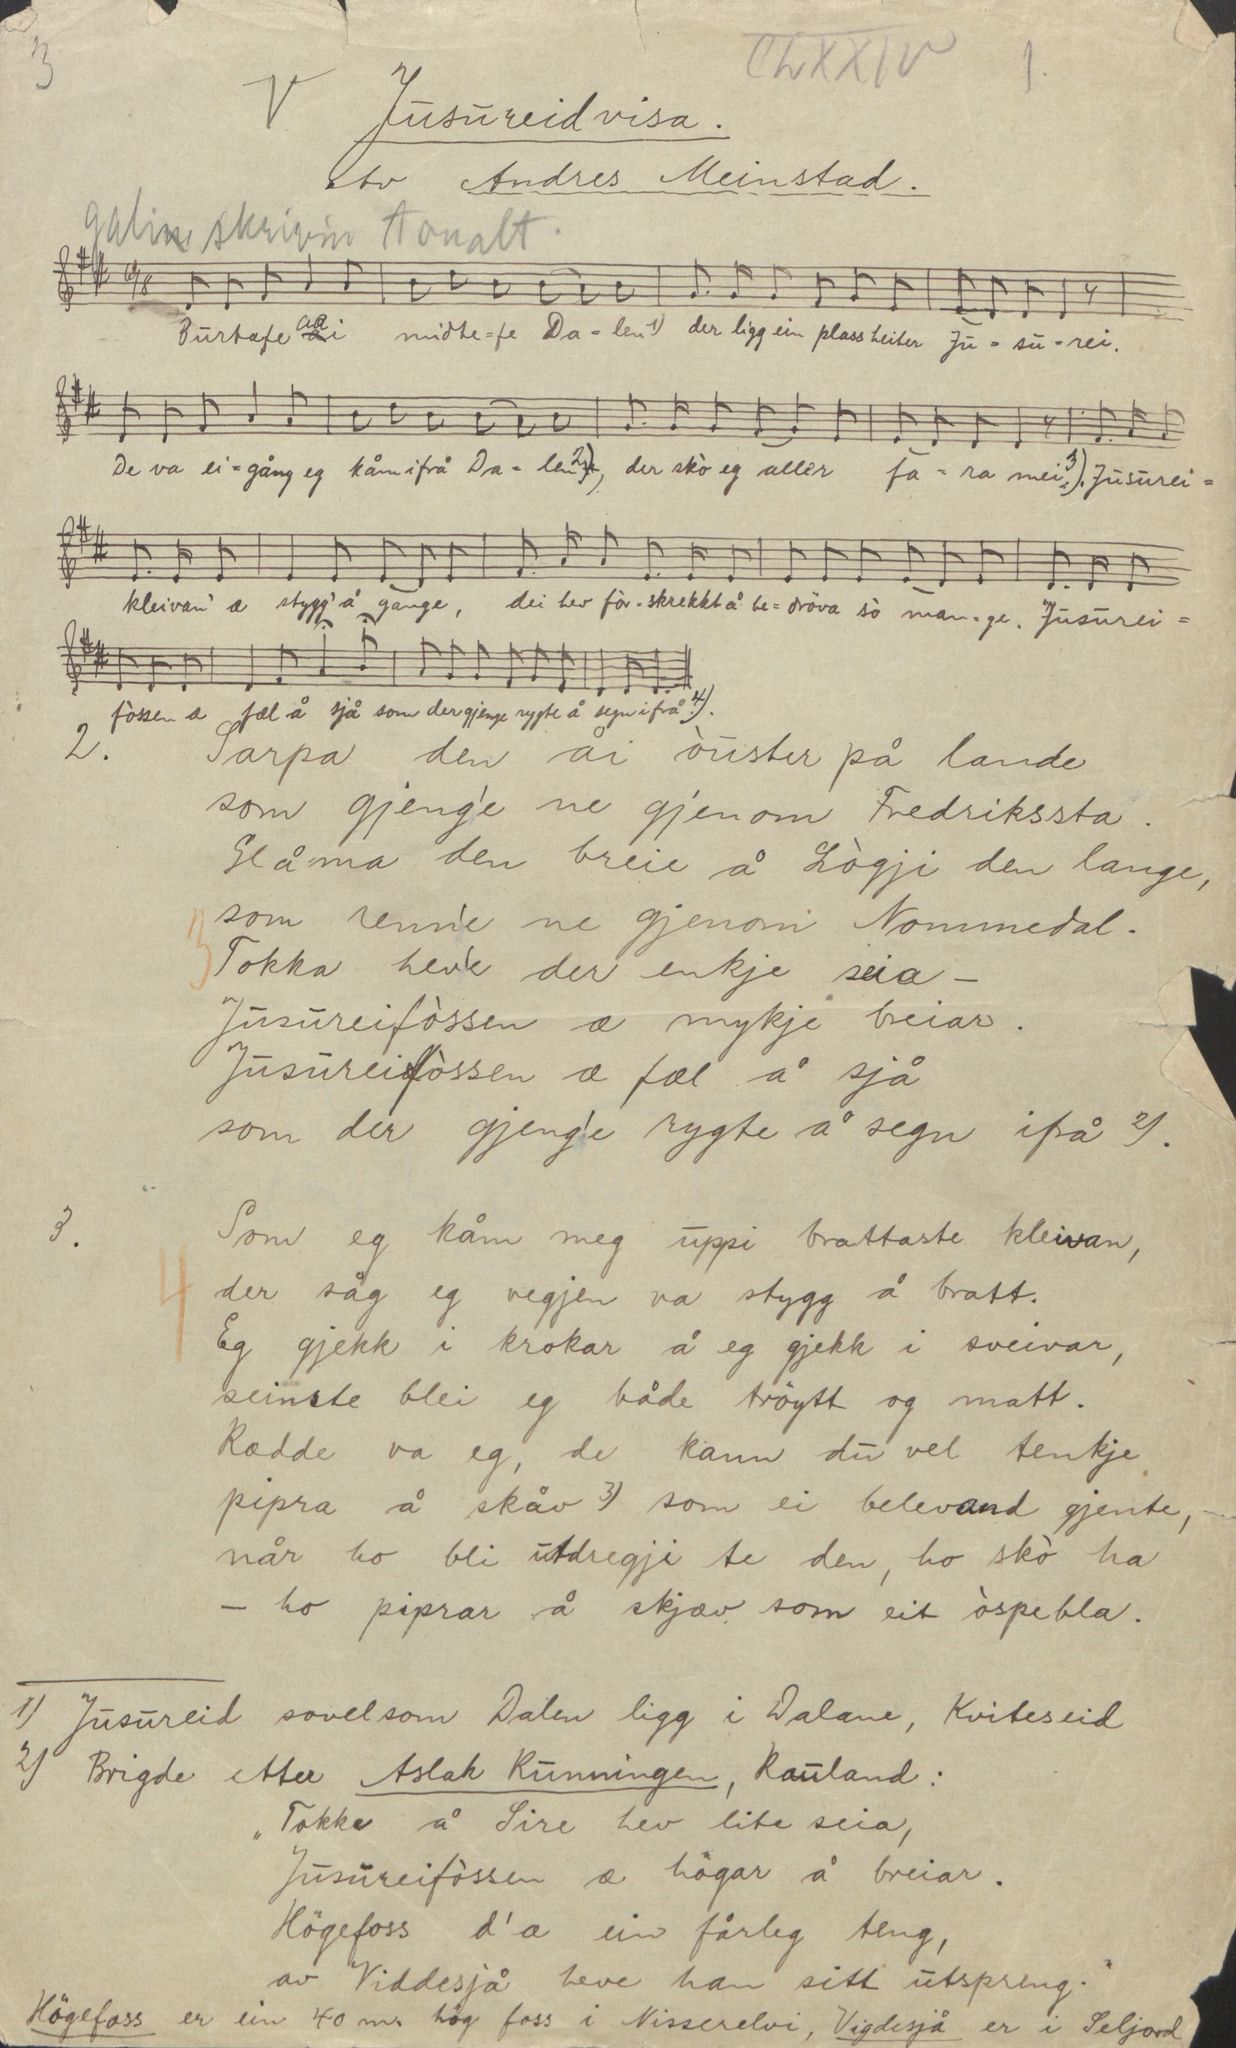 3
CLXXIV
1.
V
Jusureidvisa.
av Andres Meinstad.
galin skrivin tonalt.
Burtafe aai midte-fe Da-len 1) der ligg ein plass heiter Ju-su-rei.
De va ei-gång eg kåm ifrå Da-len 2), der skò eg aller fa-ra mei 3). Jusurei=
kleivan' æ stygg' å gange, dei hev fòr-skrekkt å be-dröva sò man-ge. Jusurei=
fòssen æ fæl å sjå som der gjenge rygte å segn ifrå 4).
2. Sarpa den åi òuster på lande
som gjeng'e ne gjenom Fredrikssta.
Glåma den breie å Lògji den lange,
som renn'e ne gjenom Nommedal.
3
Tokka hev'e der enkje seia –
Jusureifòssen æ mykje breiar.
Jusureifòssen æ fæl å sjå
som der gjeng'e rygte å segn ifrå 2).
3. Som eg kåm meg uppi brattaste kleivan,
4
der såg eg vegjen va stygg å bratt.
Eg gjekk i krokar å eg gjekk i sveivar,
seinste blei eg både tröytt og matt.
Rædde va eg, de kann du vel tenkje
pipra å skåv 3) som ei belevand gjente, –
når ho bli utdregji te den, ho skò ha
– ho piprar å skjæv som eit òspebla.
1) Jusureid sovelsom Dalen ligg i Dalane, Kviteseid
2) Brigde etter Aslak Runningen, Rauland:
„Tokke å Sire hev lite seia,
Jusureifòssen æ högar å breiar.
Högefoss d'æ ein fårleg teng,
av Viddesjå heve han sitt utspreng."
Högefoss er ein 40 m. høg foss i Nisserelvi, Vigdesjå er i Seljord